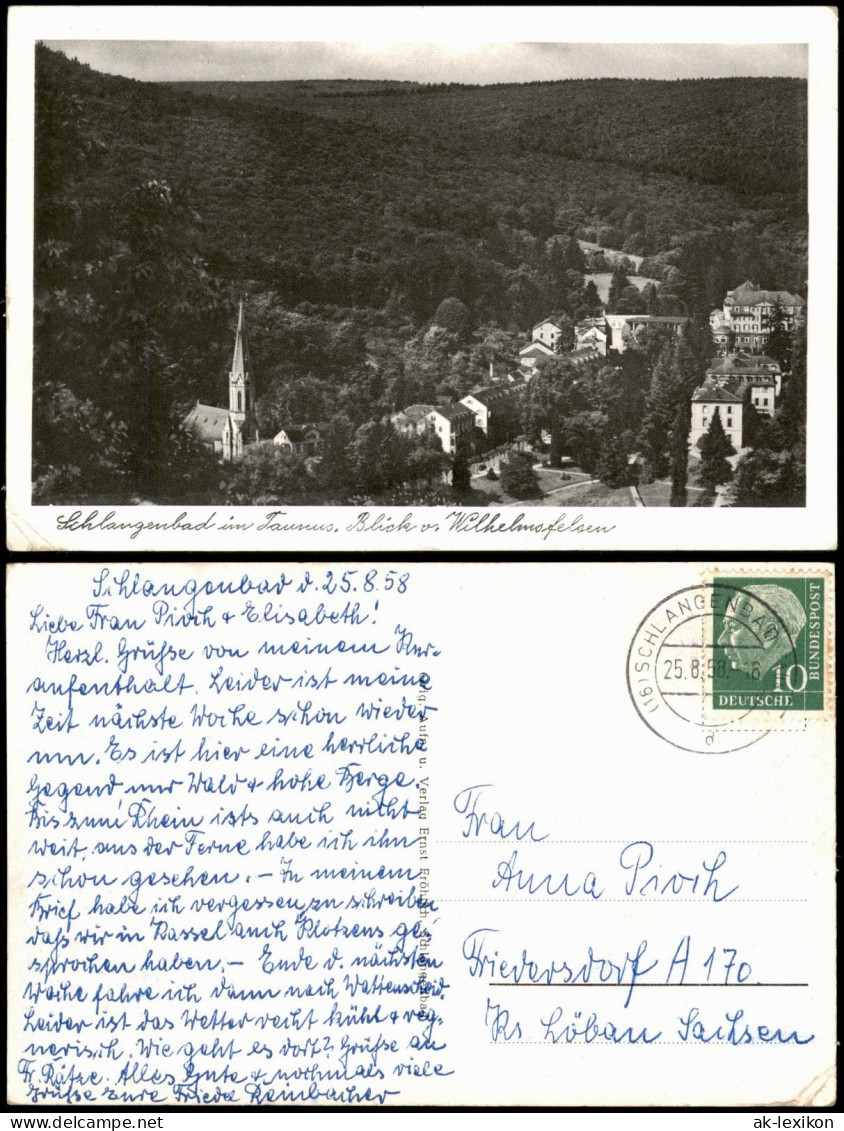 Schlangenbad im Taunus. Blick v. Wilhelmsfelsen
Schlangenbad d. 25.8.58
Liebe Frau Pioch + Elisabeth!
Herzl. Grüße von meinem Kur-
aufenthalt. Leider ist meine
Zeit nächste Woche schon wieder
um. Es ist hier eine herrliche
Gegend nur Wald + hohe Berge.
Bis zum Rhein ists auch nicht
weit, aus der Ferne habe ich ihn
schon gesehen. – In meinem
Brief habe ich vergessen zu schreiben
daß wir in Kassel auch Klotzens ge-
sprochen haben. – Ende d. nächsten
Woche fahre ich dann nach Wattenscheid.
Leider ist das Wetter recht kühl + reg-
nerisch. Wie geht es dort? Grüße an
Fr. Rätze. Alles Gute + nochmals viele
Grüße Eure Frieda Reimbacher
Orig. Aufn. u. Verlag Ernst Fröhlich, Schlangenbad
(16) SCHLANGENBAD
25.8.58.-16
d
10
DEUTSCHE
BUNDESPOST
Frau
Anna Pioch
Friedersdorf A 170
Krs Löbau Sachsen
ak-lexikon